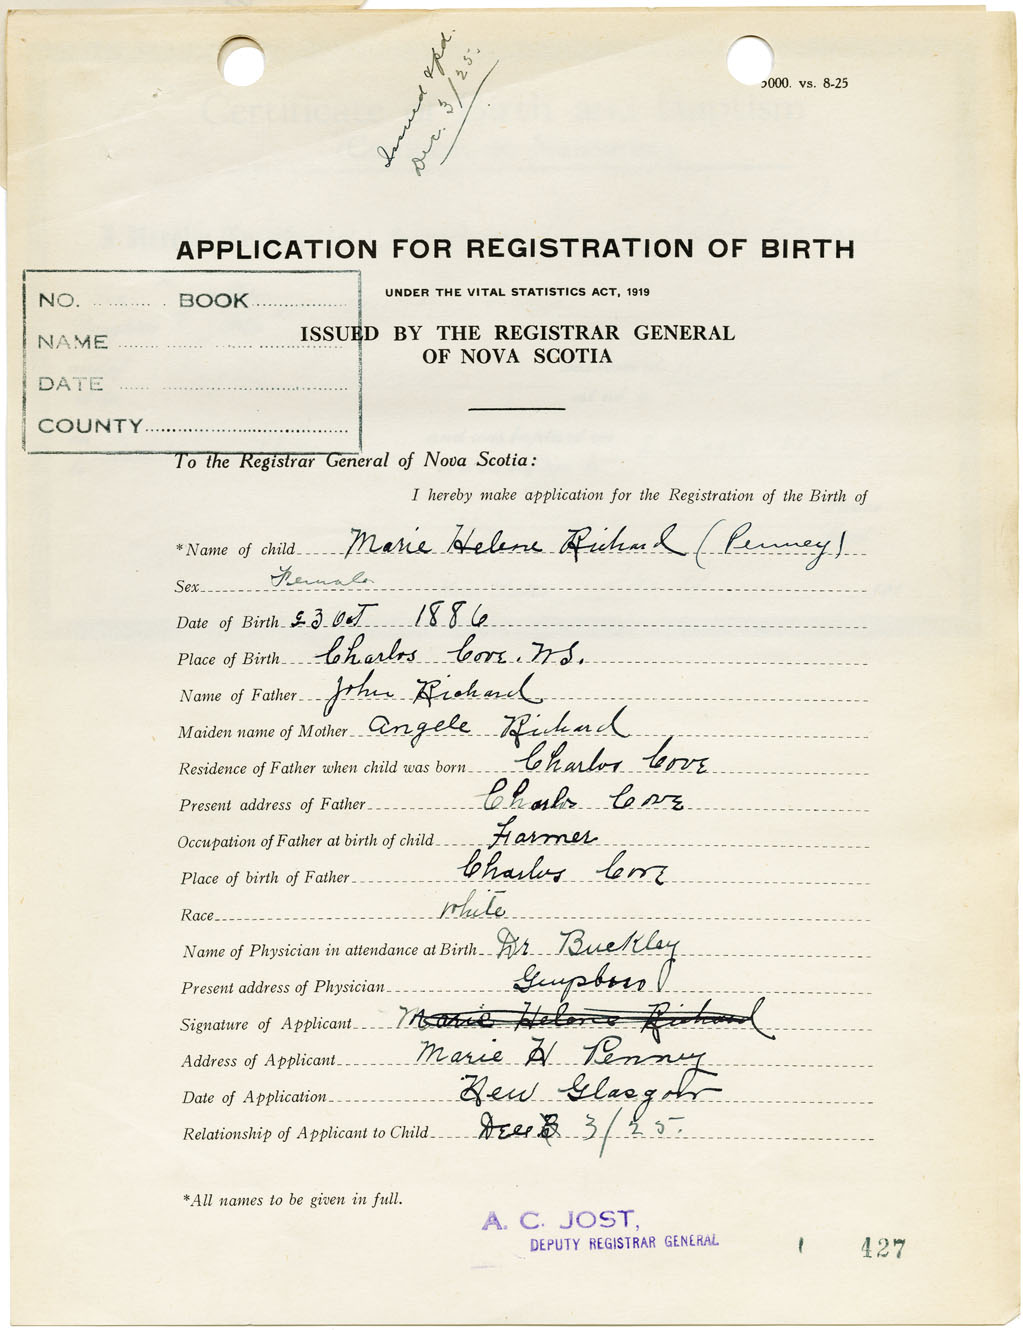 Issued & pd.
Dec. 3/25.
5000. vs. 8-25
APPLICATION FOR REGISTRATION OF BIRTH
UNDER THE VITAL STATISTICS ACT, 1919
ISSUED BY THE REGISTRAR GENERAL
OF NOVA SCOTIA
NO. BOOK
NAME
DATE
COUNTY
To the Registrar General of Nova Scotia:
I hereby make application for the Registration of the Birth of
*Name of child Marie Helene Richard (Penney)
Sex Female
Date of Birth 23 Oct 1886
Place of Birth Charlos Cove. N.S.
Name of Father John Richard
Maiden name of Mother Angele Richard
Residence of Father when child was born Charlos Cove
Present address of Father Charlos Cove
Occupation of Father at birth of child Farmer
Place of birth of Father Charlos Cove
Race white
Name of Physician in attendance at Birth Dr Buckley
Present address of Physician Guysboro
Signature of Applicant Marie Helene Richard
Address of Applicant Marie H Penney
Date of Application New Glasgow
Relationship of Applicant to Child 3/25.
*All names to be given in full.
A. C. JOST,
DEPUTY REGISTRAR GENERAL
427